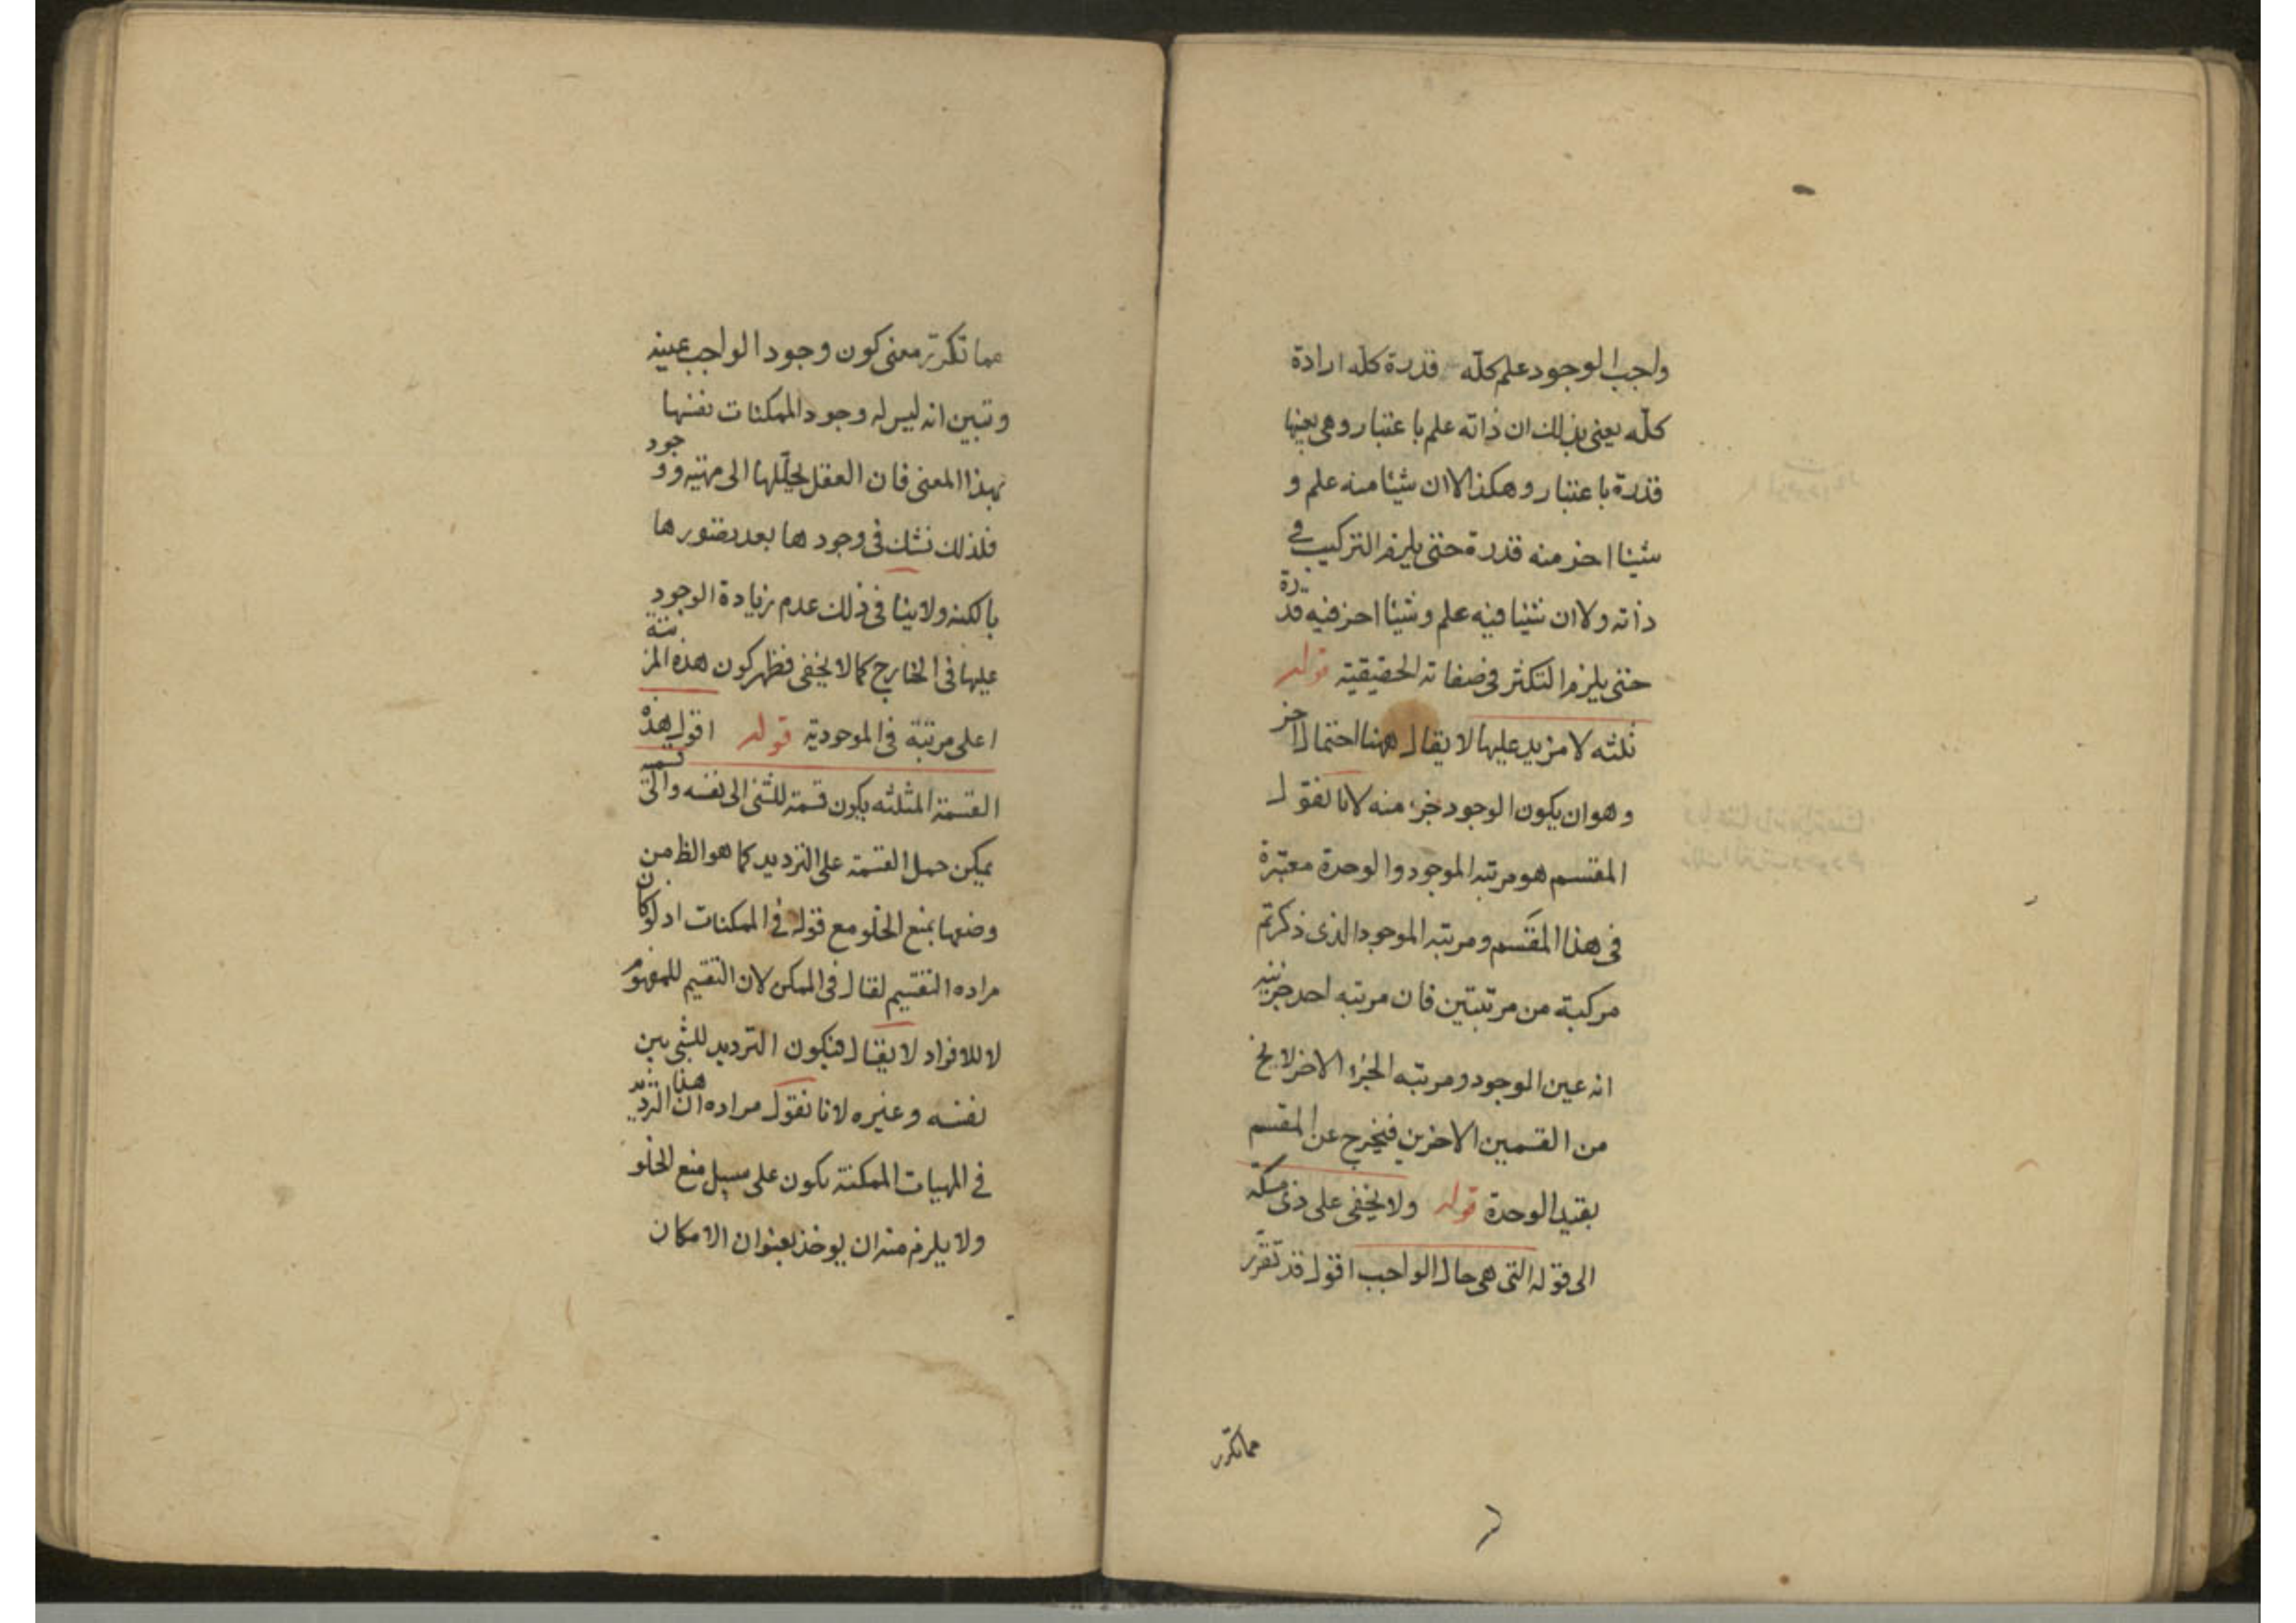 واجب الوجود علم كلّه قدرة كلّه ارادة
كلّه يعنى بذلك ان ذاته علم باعتبار وهى بعينها
قدرة باعتبار وهكذا لا ان شيئا منه علم و
شيئا اخر منه قدرة حتى يلزم التركيب فى
ذاته ولا ان شيئا فيه علم وشيئا اخر فيه قدرة
حتى يلزم التكثر فى صفاته الحقيقية قوله
ثلثه لا مزيد عليها لا يقال ههنا احتمال اخر
وهو ان يكون الوجود جزء منه لانا نقول
المقسم هو مرتبه الموجود والوحدة معتبرة
فى هذا المقسم ومرتبه الموجود الذى ذكرتم
مركبة من مرتبتين فان مرتبه احد جزئيه
انه عين الموجود ومرتبه الجزء الاخر لا يخ
من القسمين الاخرين فيخرج عن المقسم
بقيد الوحدة قوله ولا يخفى على ذى مسكه
الى قوله التى هى حال الواجب اقول قد تقرر
مما تكرر
مما تكرر معنى كون وجود الواجب عينه
وتبين انه ليس له وجود الممكنات نفسها
بهذا المعنى فان العقل يحلّلها الى مهية ووجود
فلذلك نشك فى وجودها بعد تصورها
بالكنه ولا ينافى ذلك عدم زيادة الوجود
عليها فى الخارج كما لا يخفى فظهر كون هذه المرتبة
اعلى مرتبة فى الموجودية قوله اقول هذه
القسمة المثلثه يكون قسمة للشئ الى نفسه والى قسمه
يمكن حمل القسمة على الترديد كما هو الظ من
وضعها بمنع الخلو مع قوله فى الممكنات اذ لو كان
مراده التقسيم لقال فى الممكن لان التقسيم للمفهوم
لا للافراد لا يقال فيكون الترديد للشئ بين
نفسه وغيره لانا نقول مراده ان هذا الترديد
فى المهيات الممكنة يكون على سبيل منع الخلو
ولا يلزم منه ان يوخذ بعنوان الامكان